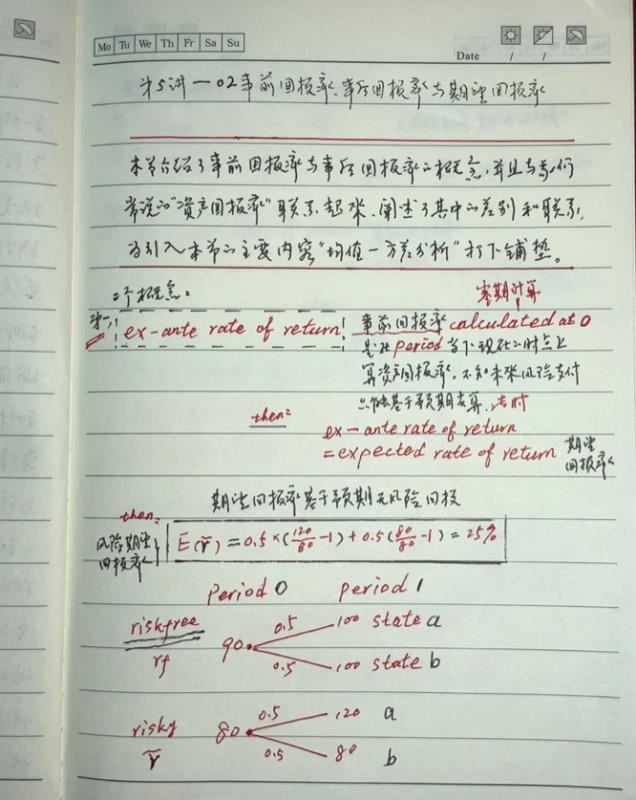 Mo Tu We Th Fr Sa Su
Date / /
第5讲—02事前回报率、事后回报率与期望回报率
本节介绍了事前回报率与事后回报率的概念,并且与我们
常说的"资产回报率"联系起来,阐述了其中的差别和联系,
为引入本节的主要内容"均值—方差分析"打下铺垫。
二个概念:
零期计算
第一, ex-ante rate of return! 事前回报率 calculated at 0
是在 period 当下现在的时点上
算资产回报率,不知未来风险支付
只能基于预期去算,此时
then: ex-ante rate of return
= expected rate of return 期望回报率
期望回报率基于预期无风险回报
then:
风险期望回报率 E(r̃) = 0.5×(120/80 -1) + 0.5(80/80 -1) = 25%
period 0 period 1
riskfree 90 0.5 100 state a
rf 0.5 100 state b
risky 80 0.5 120 a
r̃ 0.5 80 b